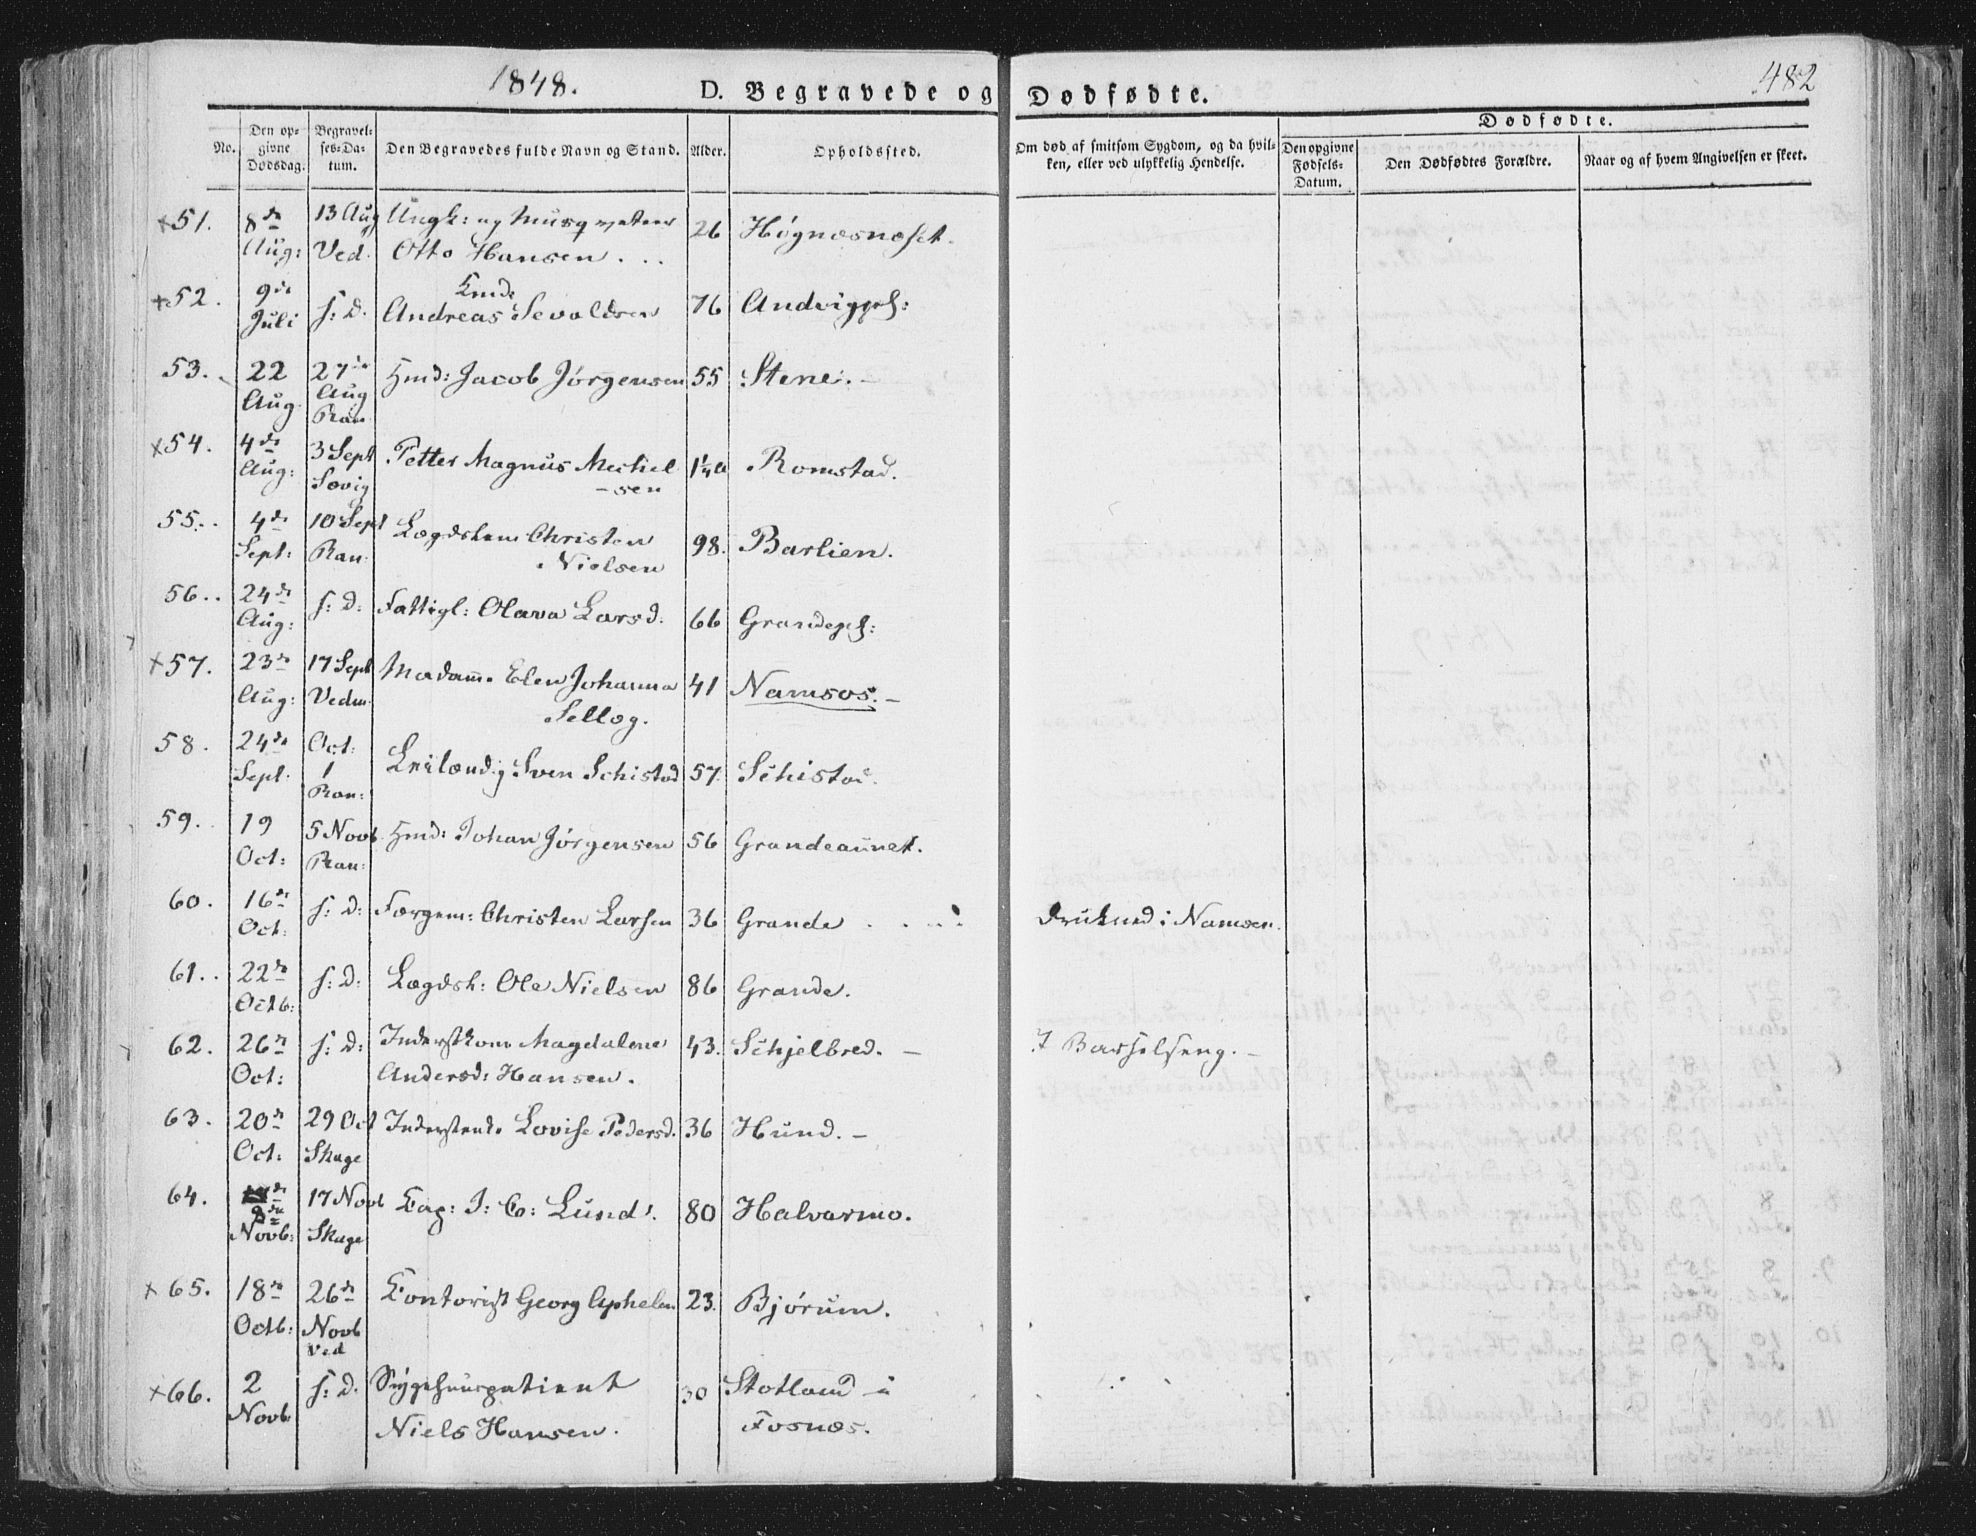 1848.
D. Begravede og Dødfødte.
482
No.
Den opgivne Dødsdag.
Begravelses-Datum.
Den Begravedes fulde Navn og Stand.
Alder.
Opholdssted.
Om død af smitsom Sygdom, og da hvilken, eller ved ulykkelig Hendelse.
Dødfødte.
Den opgivne Fødsels-Datum.
Den Dødfødtes Forældre.
Naar og af hvem Angivelsen er skeet.
+51. 8de Aug: 13 Aug Ved. Ungk: og
Otto Hansen . . . 26 Høgnæsnæset.
+52. 9de Juli f: D. Andreas Sevaldsen 76 Andviggpl:
53. 22 Aug 27de Aug Ran Hmd: Jacob Jørgensen 55 Stene. -
+54. 4de Aug: 3 Sept Sævig Petter Magnus Mechel
-sen Romstad.
55. 4de Sept: 10 Sept Ran: Lægdslem Christen
Nielsen 98. Barlien.
56. 24de Aug: f: D: Fattigl: Olava Larsd. 66 Grandepl:
+57. 23de Aug: 17 Sept Vedm. Madamme Elen Johanna
Sellæg. 41 Namsos. -
58. 24de Sept. Oct: 1 Ran: Leilændig Sven Schistad 57. Schistad.
59. 19 Oct: 5 Novb Ran: Hmd: Johan Jørgensen 56 Grandeaunet.
60. 16de Oct. f: D: Færgem: Christen Larsen 36 Grande . . . . Drukned i Namsen.
61. 22de Octb: f: D: Lægdsl: Ole Nielsen 86 Grande.
62. 26de Oct: f: D: Inderstkone Magdalene
Andersd: Hansen. 43. Schjelbred. - I Barselseng. -
63. 20de Oct: 29 Oct Skage Inderstend: Lovise Pedersd. 36 Hund. -
64. 9de Novb: 17 Novb Skage Cap: I: C: Lund. 80 Halvarmo.
+65. 18de Octb: 26de Novb Ved Contorist Georg Aphelen 23. Bjørum.
+66. 2 Novb f: D. Sygehuuspatient
Niels Hansen. 30 Stotland i
Fosnæs.